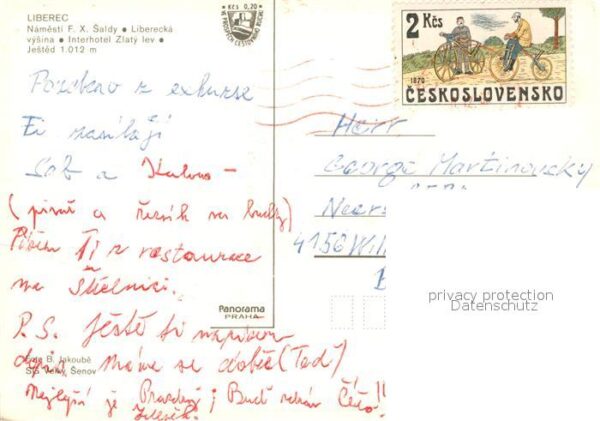 LIBEREC
Náměstí F. X. Šaldy ● Liberecká
výšina ● Interhotel Zlatý lev ●
Ještěd 1.012 m
Kčs 0,20
2 Kčs
1870
ČESKOSLOVENSKO
Pozdrav z exkurse
Ti zasílají
a
(pivař a řezník na buchty)
Píšeme Ti z restaurace
na Střelnici.
P.S. Ještě ti napíšem
dopis máme se dobře (Teď)
Nejlepší je Prazdroj; Buď zdráv Čéčo!!
Herr
George Martinovsky
4156 Will
Panorama
PRAHA
Foto B. Jakoubě
Šenov
privacy protection
Datenschutz